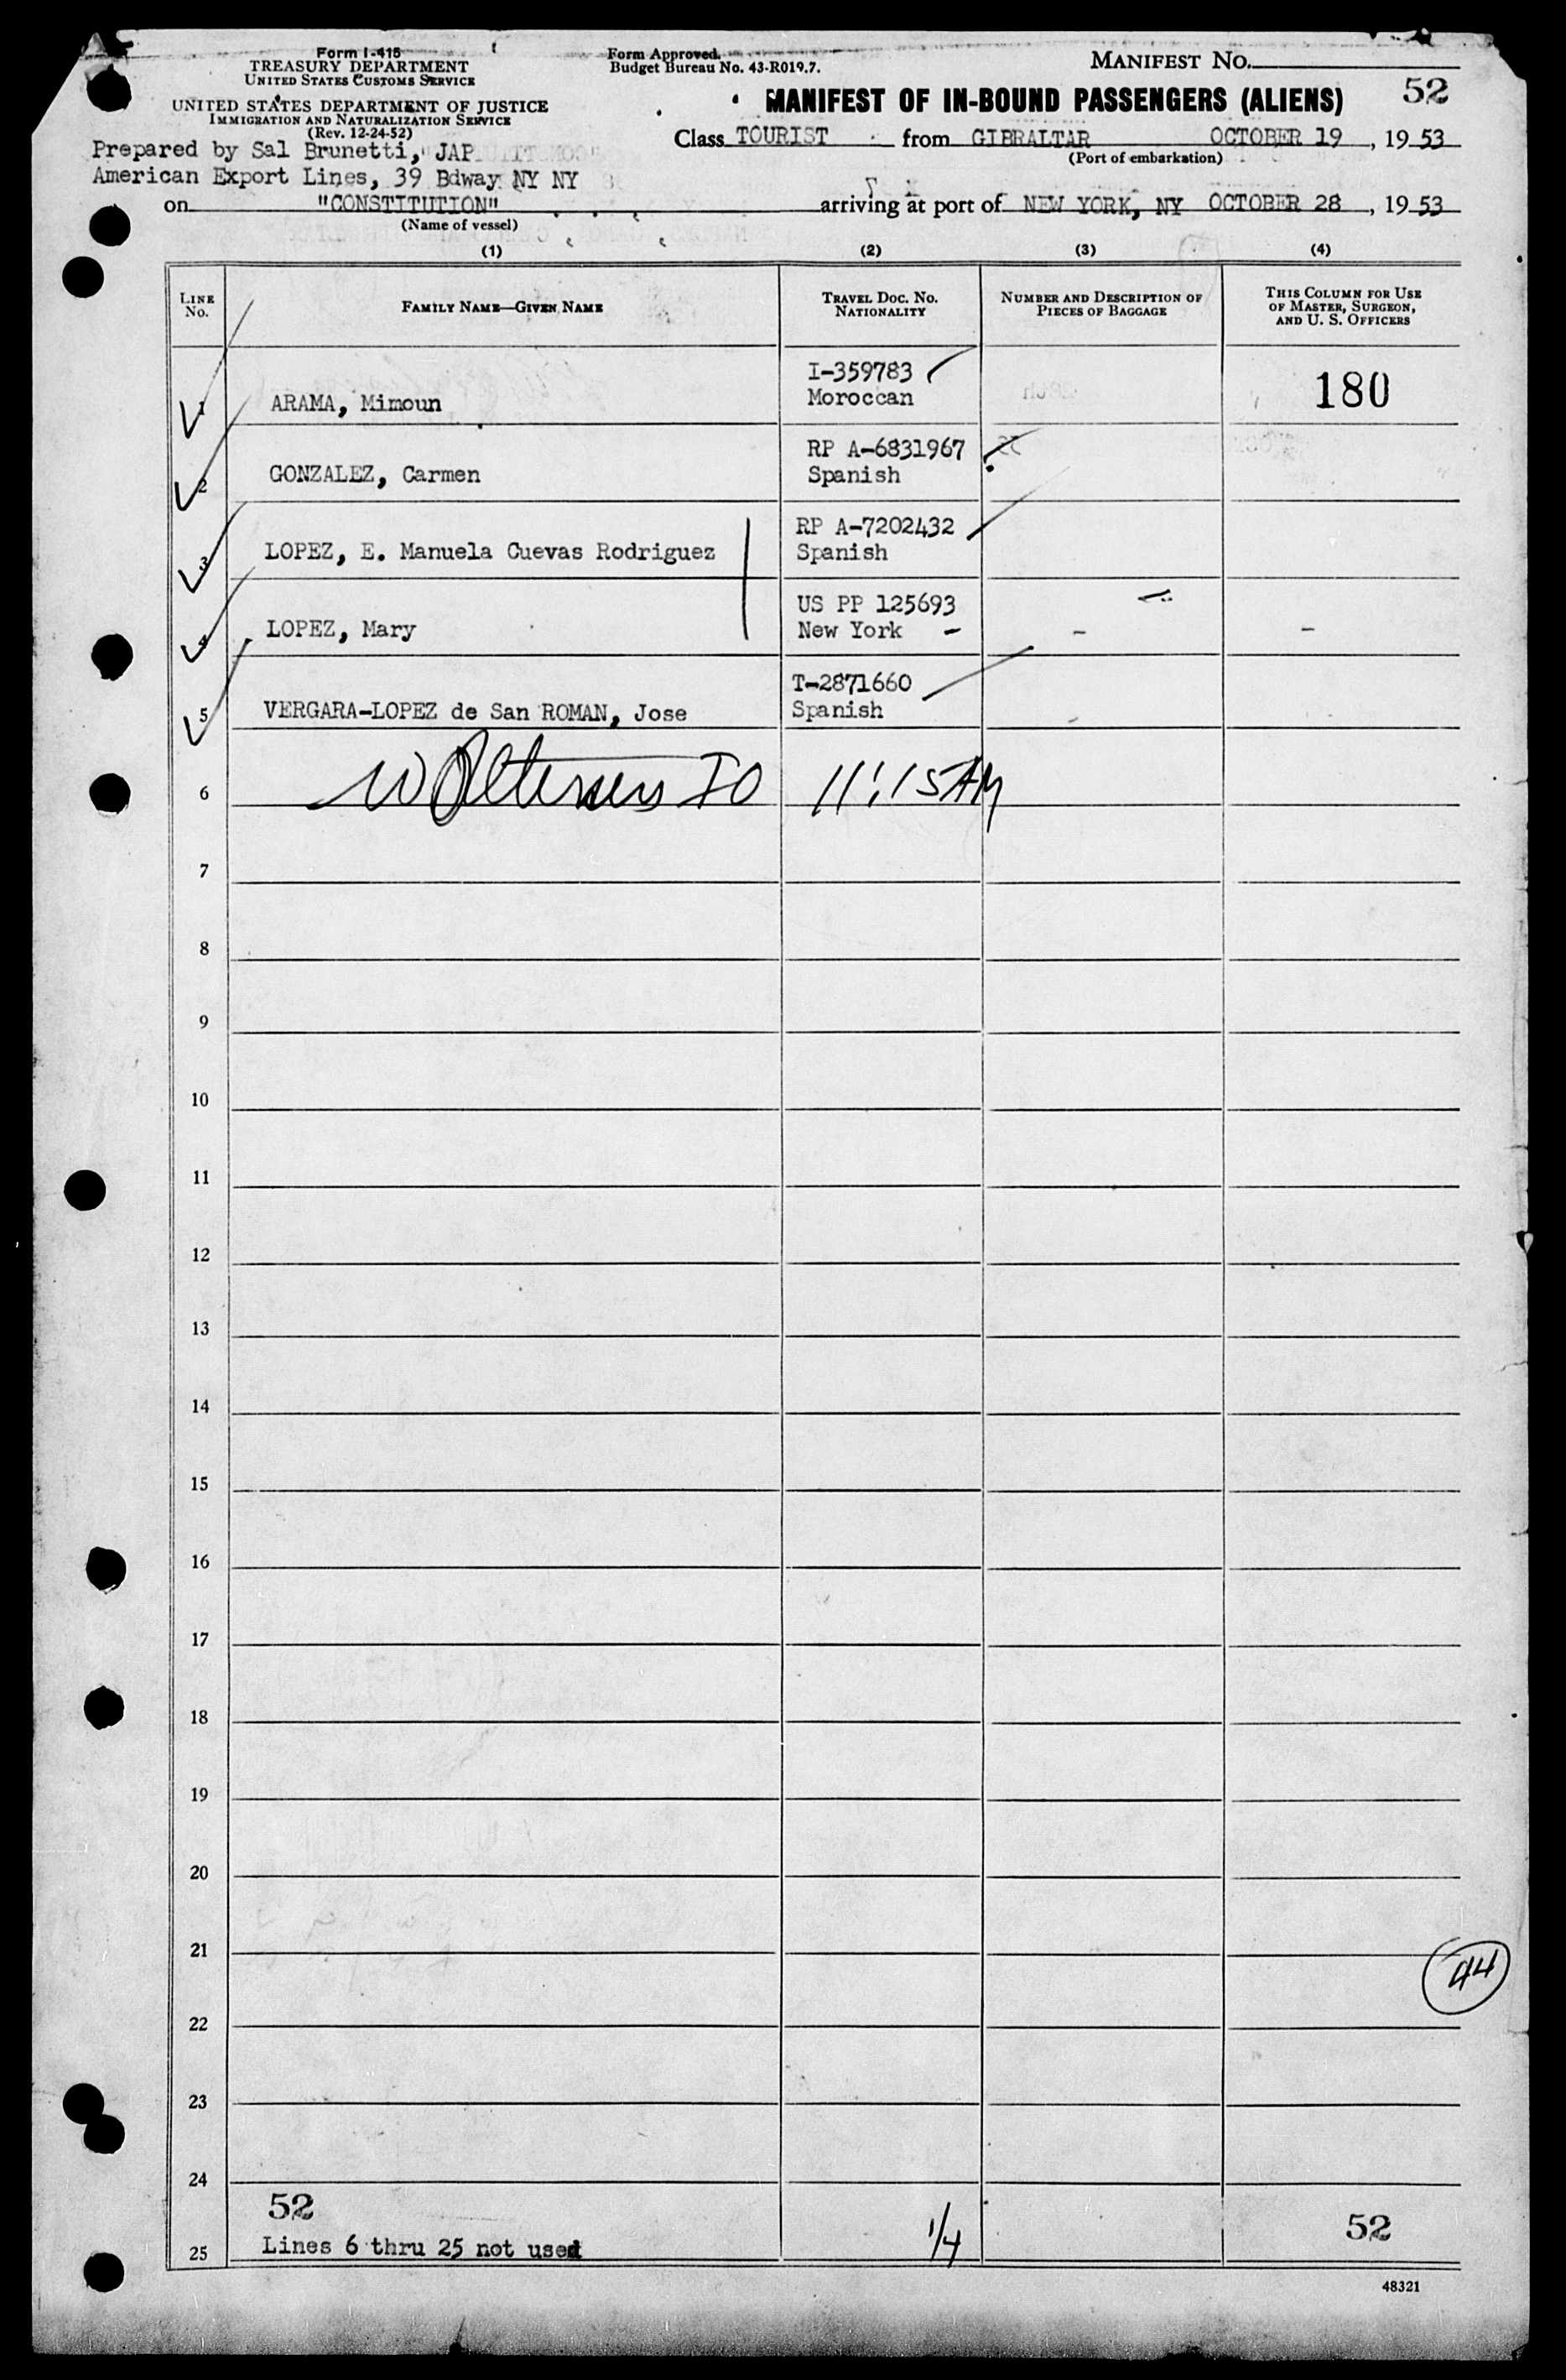 Form I-415
TREASURY DEPARTMENT
UNITED STATES CUSTOMS SERVICE
UNITED STATES DEPARTMENT OF JUSTICE
IMMIGRATION AND NATURALIZATION SERVICE
(Rev. 12-24-52)
Form Approved.
Budget Bureau No. 43-R019.7.
MANIFEST NO.
52
MANIFEST OF IN-BOUND PASSENGERS (ALIENS)
Prepared by Sal Brunetti, JAP
American Export Lines, 39 Bdway NY NY
Class TOURIST from GIBRALTAR OCTOBER 19, 19 53
(Port of embarkation)
on "CONSTITUTION" arriving at port of NEW YORK, NY OCTOBER 28, 19 53
(Name of vessel)
(1) (2) (3) (4)
LINE NO.
FAMILY NAME—GIVEN NAME
TRAVEL DOC. NO. NATIONALITY
NUMBER AND DESCRIPTION OF PIECES OF BAGGAGE
THIS COLUMN FOR USE OF MASTER, SURGEON, AND U. S. OFFICERS
1 ARAMA, Mimoun I-359783 Moroccan 180
2 GONZALEZ, Carmen RP A-6831967 Spanish
3 LOPEZ, E. Manuela Cuevas Rodriguez RP A-7202432 Spanish
4 LOPEZ, Mary US PP 125693 New York - - -
5 VERGARA-LOPEZ de San ROMAN, Jose T-2871660 Spanish
6 IO 11:15 AM
7
8
9
10
11
12
13
14
15
16
17
18
19
20
21
44
22
23
24
52
25 Lines 6 thru 25 not used 1/4 52
48321